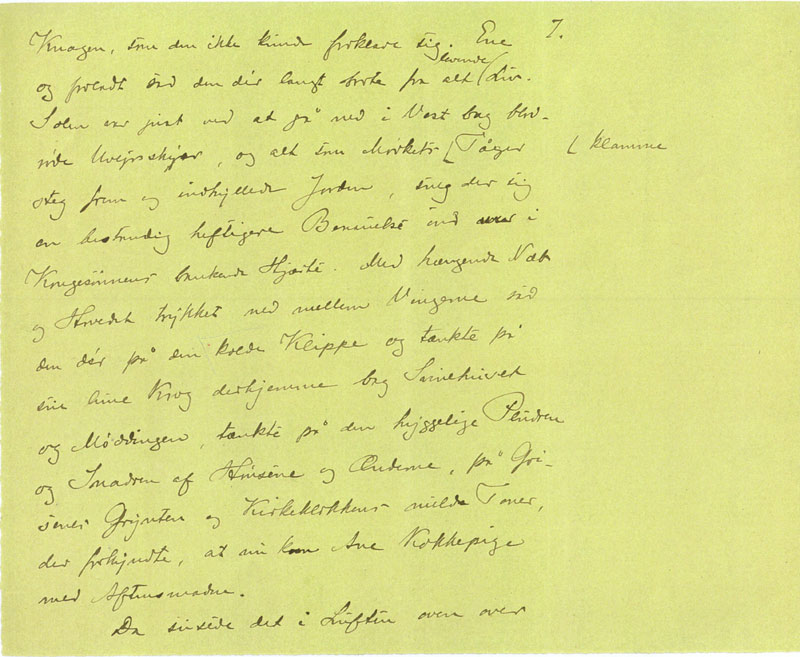 som den ikke kunde forklare sig. Ene 7.
og forladt sad den dér langt borte fra alt levende Liv.
Solen var just ved at gå ned i Vest bag blod-
røde Uvejrsskyer, og alt som Mørkets [Tåger [klamme
steg frem og indhyllede Jorden, sneg der sig
en bestandig heftigere ind i
Kongesønnens bankende Hjærte. Med hængende Næb
og Hovedet trykket ned mellem Vingerne sad
den dér på den kolde Klippe og tænkte på
sin lune Krog derhjemme bag Svinehuset
og Møddingen, tænkte på den hyggelige Pludren
og Snadren af Hønsene og Ænderne, på Gri-
senes Grynten og Kirkeklokkens milde Toner,
der forkyndte, at nu kom Ane Kokkepige
med Aftensmaden.
Da susede det i Luften oven over